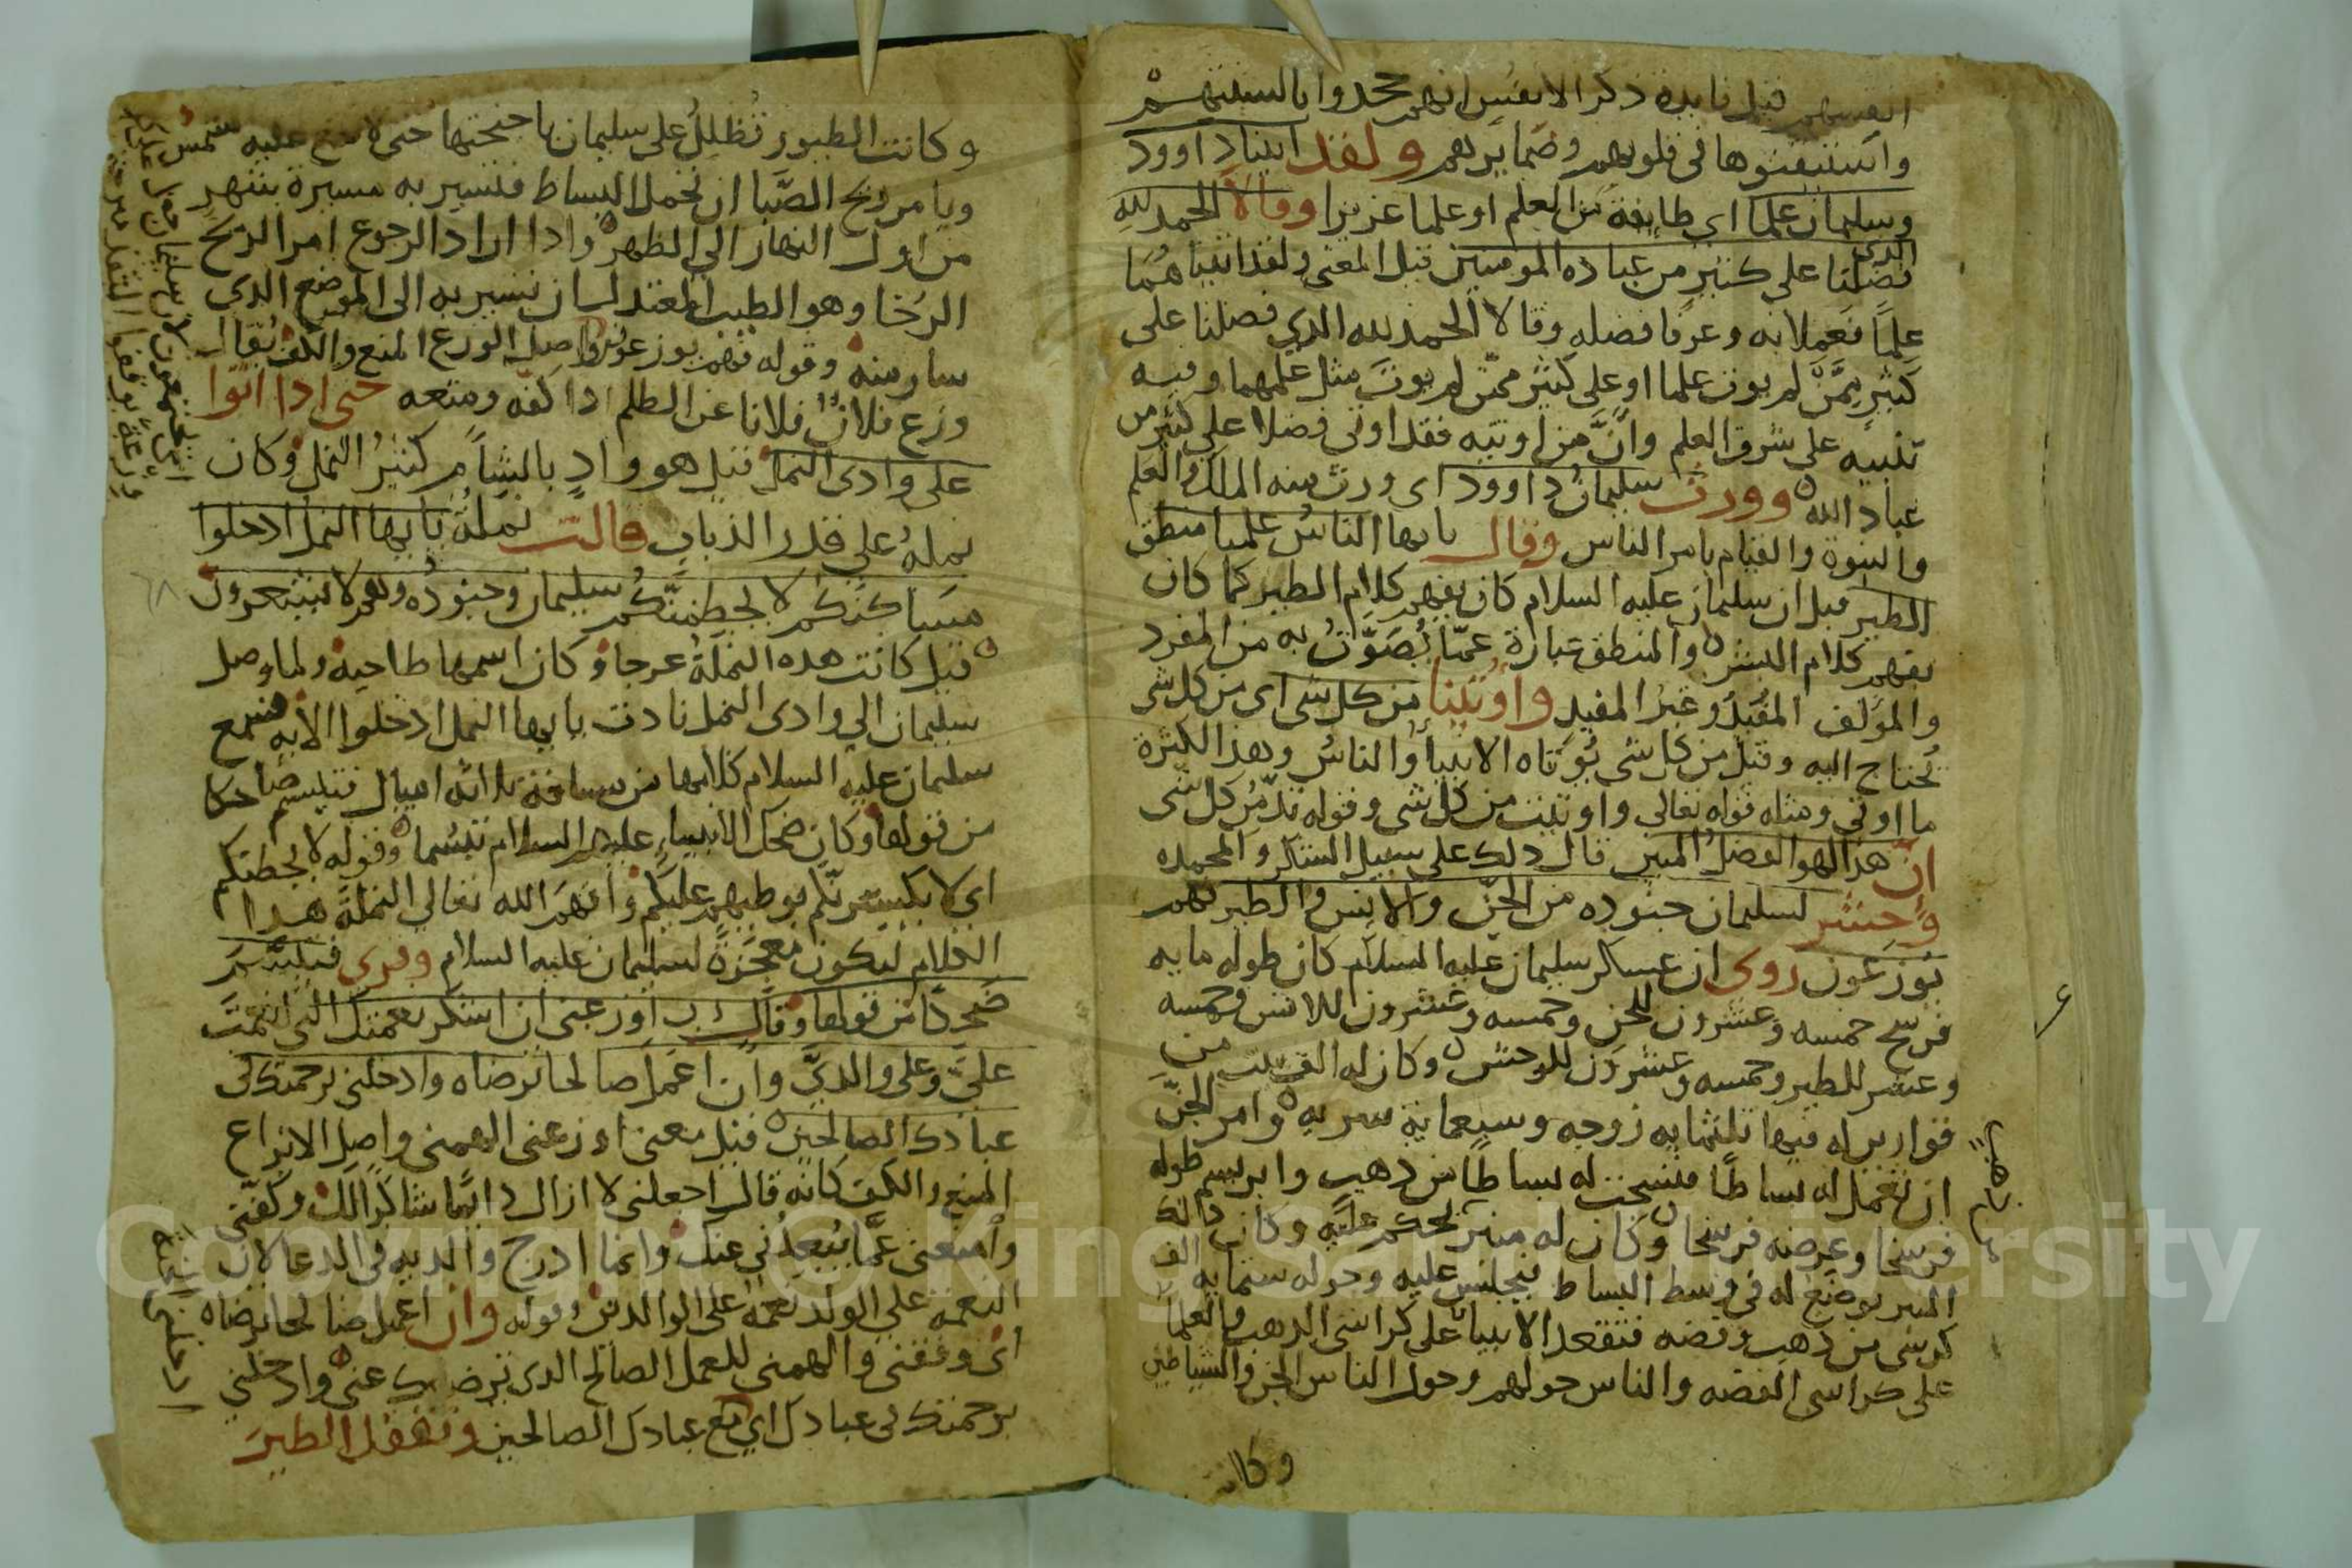 انفسهم قيل فايدة ذكر الانفس انهم جحدوا بالسنتهم
واستيقنوها فى قلوبهم وضمايرهم ولقد اتينا داوود
وسليمان علما اى طايفة من العلم او علما عزيزا وقالا الحمد لله
الذى
فضلنا على كثير من عباده المومنين قيل المعنى ولقد اتيناهما
علمًا فعملا به وعرفا فضله وقالا الحمد لله الذي فضلنا على
كثيرٍ ممَّن لم يوت علما او على كثير ممّن لم يوتَ مثل علمهما وفيه
تنبيه على شرف العلم وانَّ من اوتيه فقد اوتى فضلا على كثير من
عباد الله وورث سليمانُ داوود اى ورث منه الملك والعلم
والنبوة والقيام بامر الناس وقال يايها الناسُ علمنا منطق
الطير قيل ان سليمان عليه السلام كان يفهم كلام الطير كما كان
يفهم كلام البشر والمنطق عبارة عمّا يُصَوَّتُ به من المفرد
والمولف المُفيدُ وغيرُ المفيدِ وأوتينا من كل شى اى من كل شى
نُحتاج اليه وقيل من كل شى يُوتاه الانبياُ والناسُ وهذا لكثرة
ما اوتى ومثله قوله تعالى واوتيت من كل شى وقوله تدّمرُ كل شى
انَّ هذا لهو الفضلُ المبين قال ذلك على سبيل الشكر والمحمده
وَحشر لسليمان جنوده من الجنّ والانس والطير فهم
يُوزعون روى ان عسكر سليمان عليه السلام كان طوله مايه
فرسخ خمسه وعشرون للجن وخمسه وعشرون للانس وخمسه
وعشر للطير وخمسه وعشرون للوحش وكان له الف بيت من
قوارير له فيها ثلثمايه زوجه وسبعماية سريه وامر الجنّ
ان تعمل له بساطًا فنسجت له بساطًا من ذهب وابريسم طوله
فرسخا وعرضه فرسخا وكان له منبر تحكم عليه وكان ذالك
المنبر يوضع له فى وسط البساط فيجلس عليه وحوله ستمايه الف
كرسى من ذهب وفضه فتقعد الانبيا على كراسى الذهب والعلما
على كراسى الفضه والناس حولهم وحول الناس الجن والشياطين
وكا
وكانت الطيور تُظلِلُ على سليمان باجنحتها حتى لا تقع عليه شمس
ويامر ريح الصَّبا ان تحمل البساط فتسير به مسيرة شهرٍ
من اول النهار الى الظهر واذا اراد الرجوع امر الريح
الرُخا وهو الطيب المعتدل ان تسير به الى الموضع الذي
سار منه وقوله فهم يوزعون واصل الوزع المنع والكف يُقال
وزع فلانٌ فلانا عن الظلم اذا كفّه ومنعه حتى اذا اتوا
على وادى النمل قيل هو وادٍ بالشاَم كثيرُ النمل وكان
نملهُ على قدر الذباب قالت نملةُ يايها النمل ادخلوا
مساكنكم لا يحطمنَّكُم سليمان وجنودُه وهم لا يشعرون
قيل كانت هذه النملةُ عرجا وكان اسمها طاحيه ولما وصل
سليمان الى وادى النمل نادت يايها النمل ادخلوا الايه فسمع
سليمان عليه السلام كلامها من مسافة ثلاثه اميال فتبسم ضاحكا
من قولها وكان ضحك الانبياء عليهم السلام تبسُما وقوله لا يحطمنكم
اى لا يكسرنّكم بوطيهم عليكم وأفهَمَ الله تعالى النملةَ هذا
الكلام ليكون معجزةً لسليمان عليه السلام وقرى فتبسَّمَ
ضحكًا من قولها وقال رب اوزعنى ان اشكر نعمتك التى انعمتَ
علىّ وعلى والديَّ وان اعمل صالحا ترضاه وادخلني برحمتك فى
عبادك الصالحين قيل معنى اوزعنى الهمنى واصل الايزاع
المنع والكف كانه قال اجعلنى لا ازال دايمًا شاكرًا لك وكفّنى
وامنعنى عمّا يُبعدُنى عنك وانما ادرج والديه فى الدعا لان
النعمه على الولد نعمه على الوالدين وقوله وان اعمل صالحا ترضاه
اى وفقنى والهمنى للعمل الصالح الذى ترضى به عنى وادخلني
برحمتك فى عبادك اي مع عبادك الصالحين وتفقد الطيرَ